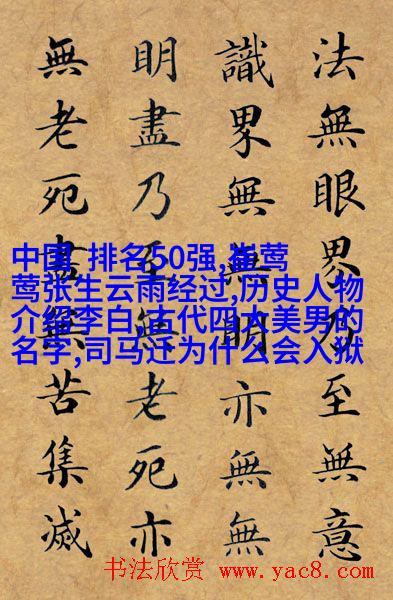 法無眼界乃至無意
識界無無明亦無無
明盡乃至無老死亦
無老死盡無苦集滅
中国 排名50强,崔莺
莺张生云雨经过,历史人物
介绍李白,古代四大美男的
名字,司马迁为什么会入狱
书法欣赏 www.yac8.com